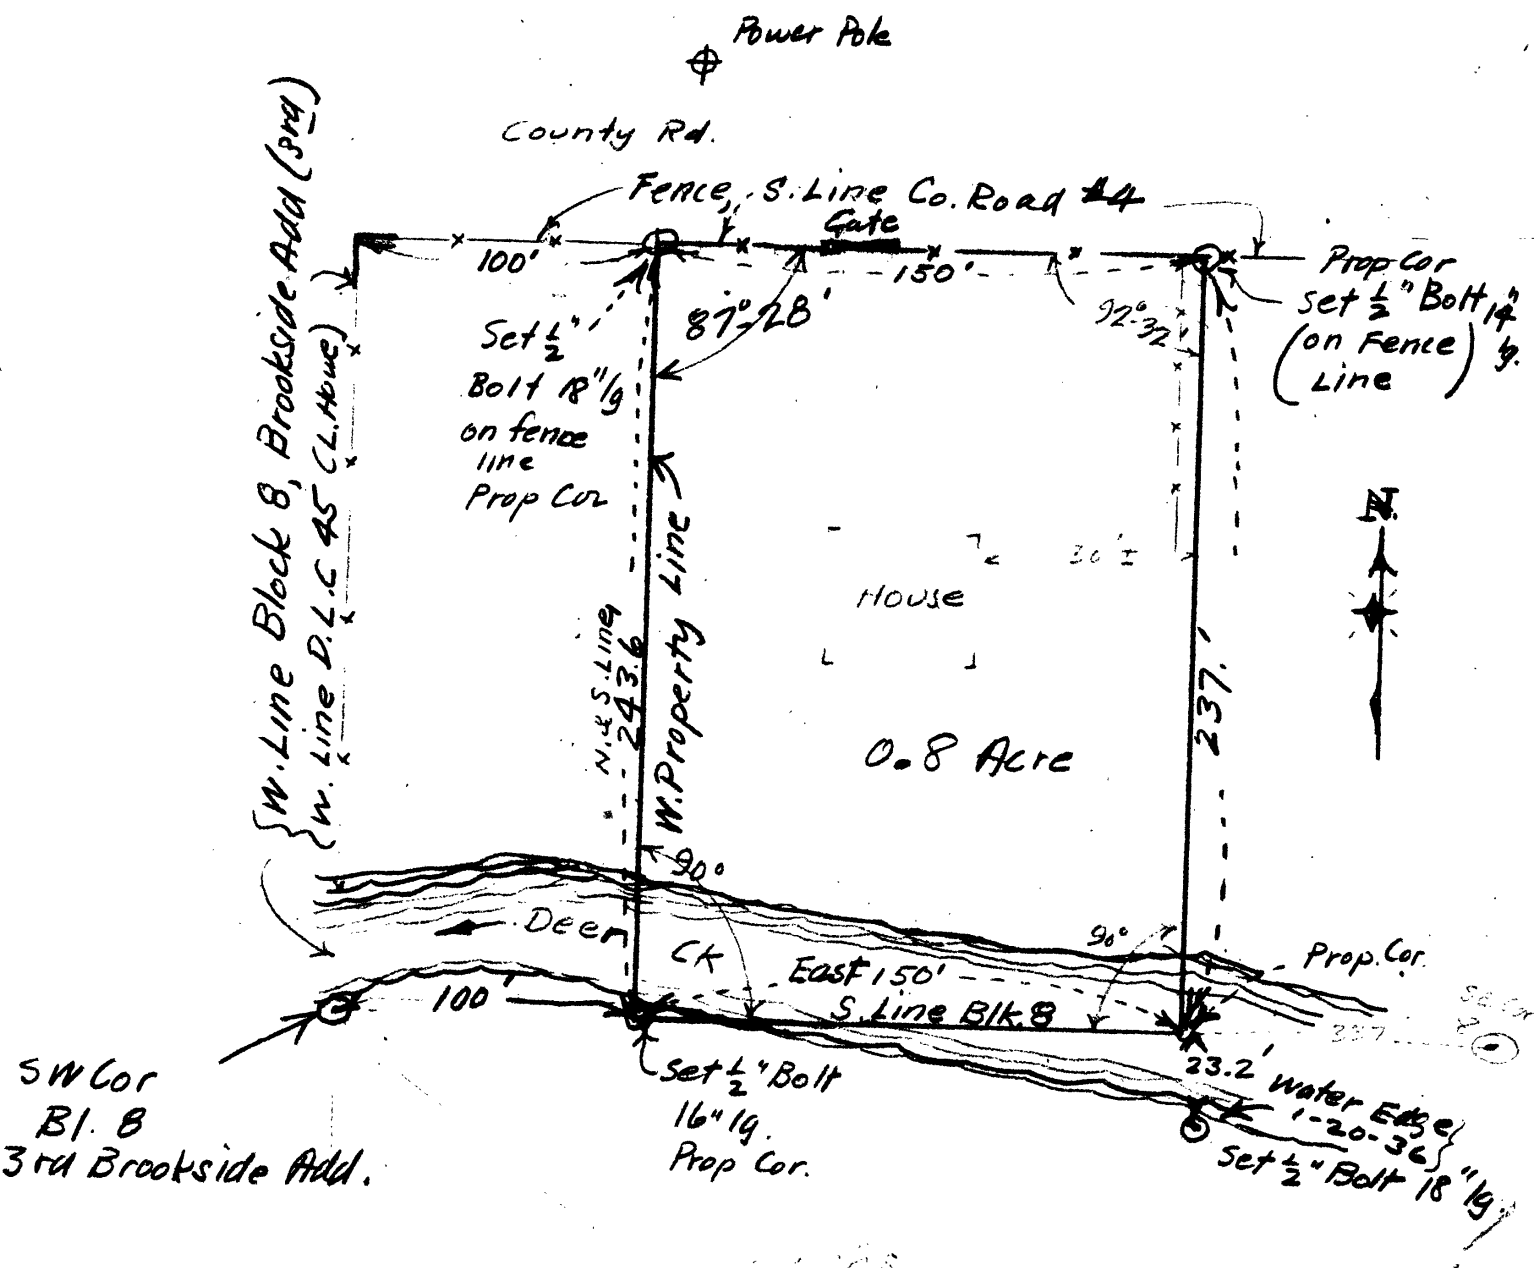 Power Pole
County Rd.
Fence, S. Line Co. Road #4
Gate
100'
150'
Prop Cor
Set 1/2" Bolt 14" lg.
(on Fence
Line)
87°-28'
92°-32
Set 1/2"
Bolt 18" lg
on fence
line
Prop Cor
W. Line Block 8, Brookside Add (3rd)
W. Line D.L.C 45 (L. Howe)
N. & S. Line
243.6
W. Property Line
30'±
House
N
0.8 Acre
237.'
90°
90°
Deer
CK
East 150'
S. Line Blk. 8
Prop. Cor.
100'
337
SE Cor
23.2'
Water Edge
1-20-36
Set 1/2" Bolt 18" lg.
Set 1/2" Bolt
16" lg.
Prop Cor.
SW Cor
Bl. 8
3rd Brookside Add.